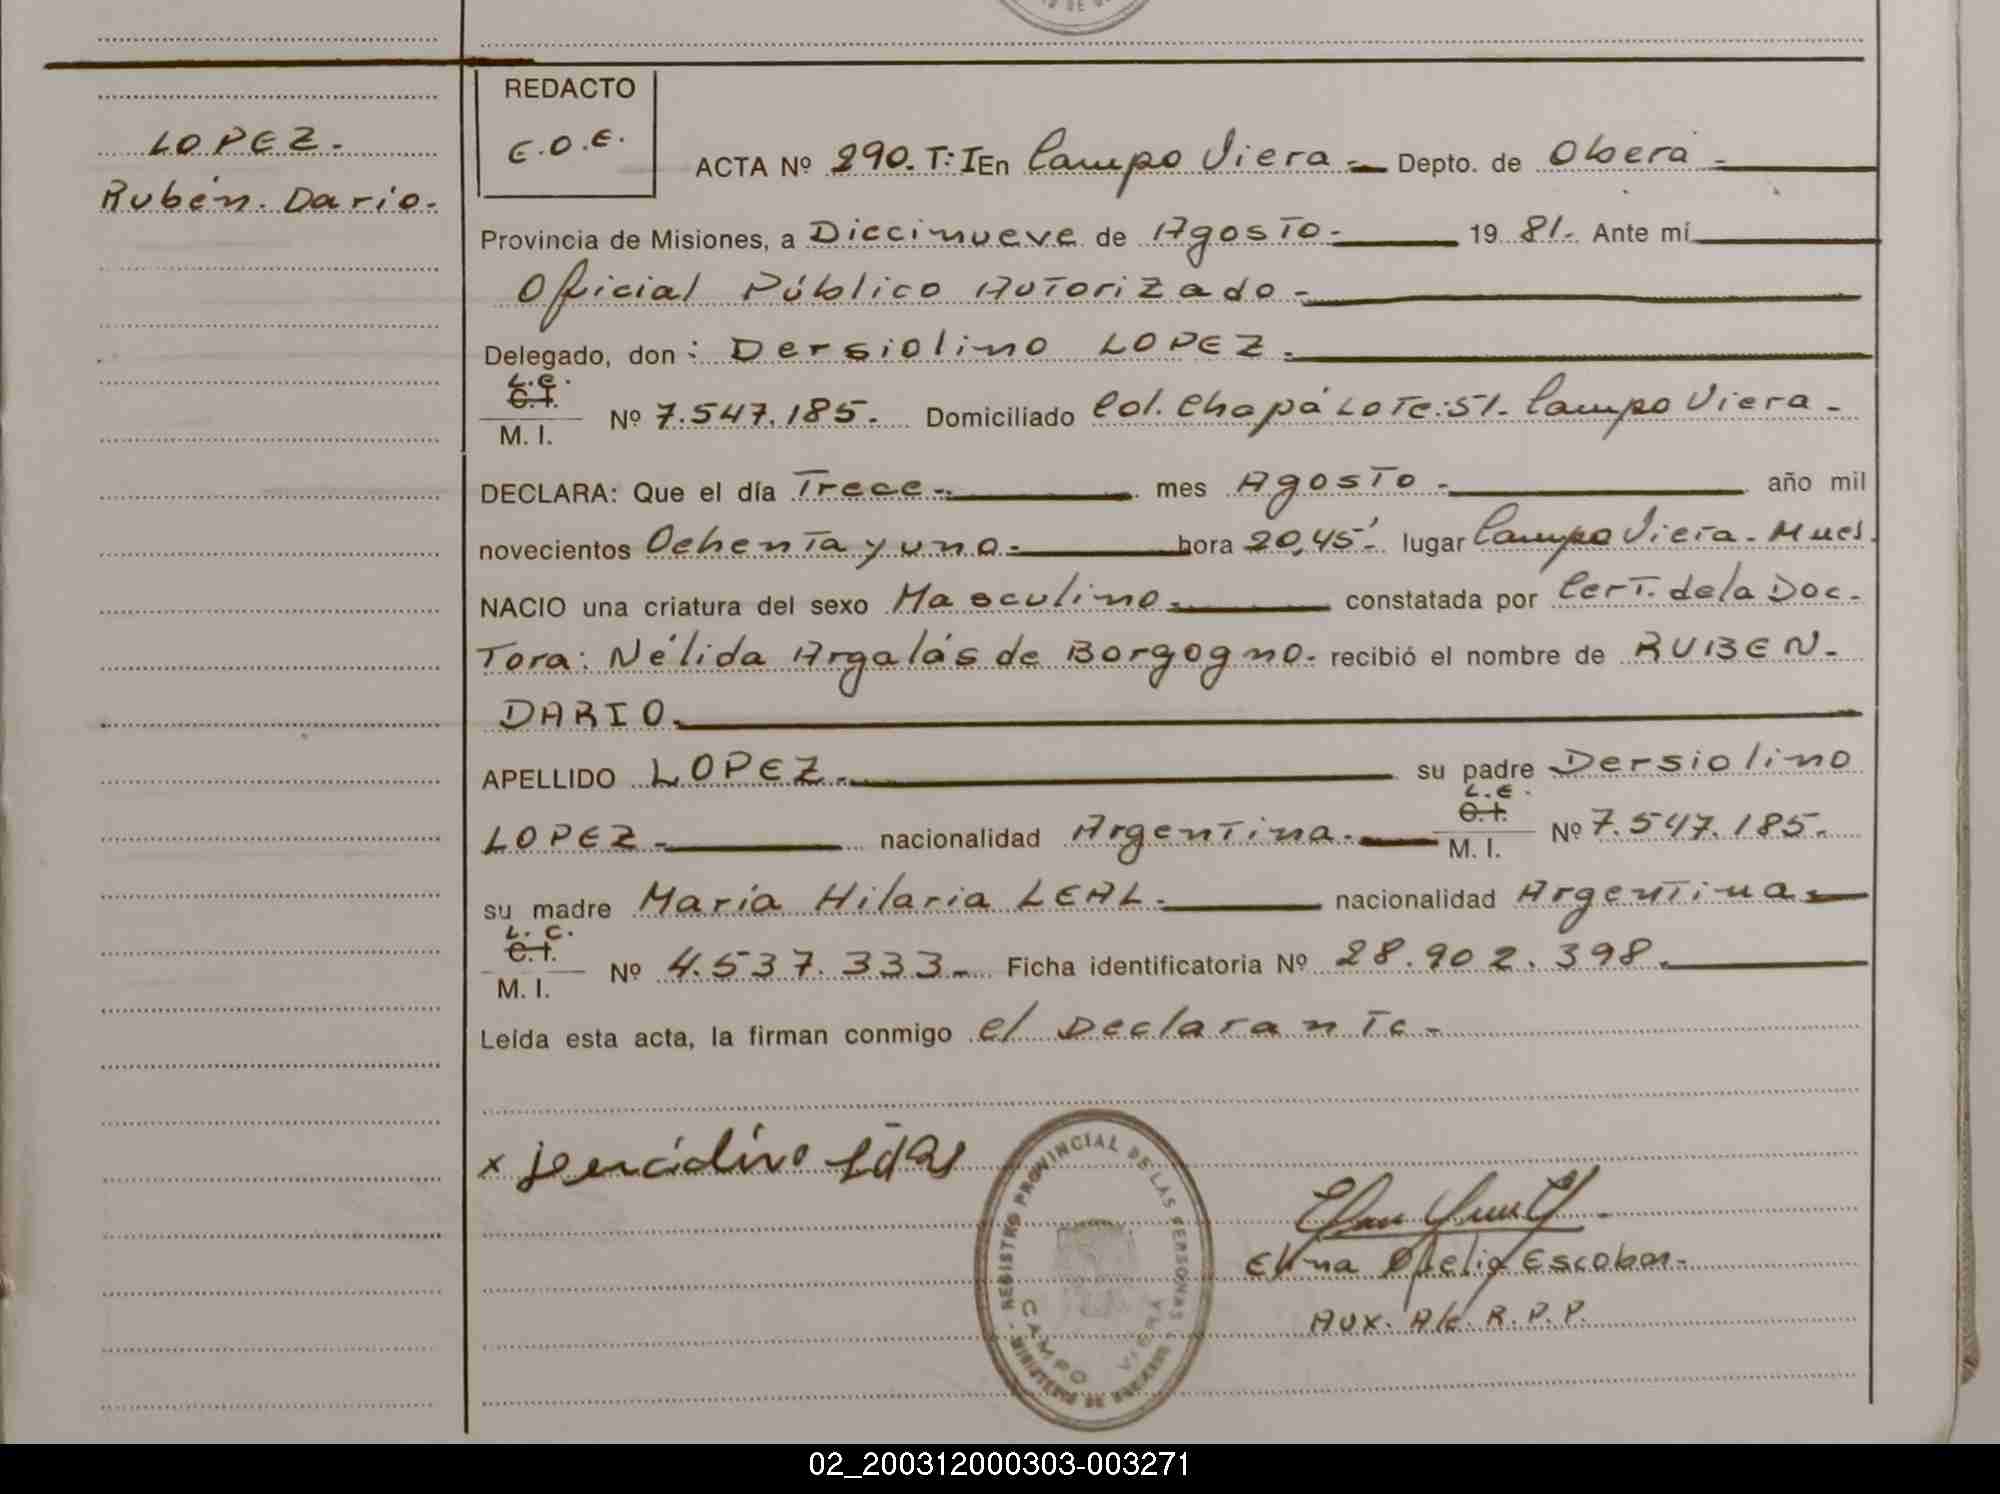 REDACTO
E.O.E.
LOPEZ.
Rubén. Darío.
ACTA Nº 290. T: I En Campo Viera - Depto. de Oberá -
Provincia de Misiones, a Diecinueve de Agosto - 19 81. Ante mí
Oficial Público Autorizado -
Delegado, don : Dersiolino LOPEZ.
L.E.
C.I.
M. I. Nº 7.547.185. Domiciliado Col. Chapá Lote: 51. Campo Viera -
DECLARA: Que el día Trece - mes Agosto - año mil
novecientos Ochenta y uno - hora 20,45' lugar Campo Viera - Mnes.
NACIO una criatura del sexo Masculino - constatada por Cert. de la Doc-
tora: Nélida Argalás de Borgogno. recibió el nombre de RUBEN -
DARIO.
APELLIDO LOPEZ. su padre Dersiolino
LOPEZ - nacionalidad Argentina. L.E. C.I. M. I. Nº 7.547.185.
su madre María Hilaria LEAL. nacionalidad Argentina -
L. C.
C.I.
M. I. Nº 4.537.333 - Ficha identificatoria Nº 28.902.398.
Leída esta acta, la firman conmigo el Declarante -
x
REGISTRO PROVINCIAL DE LAS PERSONAS
CAMPO VIERA
Elina Ofelia Escobar.
AUX. R.P.P.
02_200312000303-003271